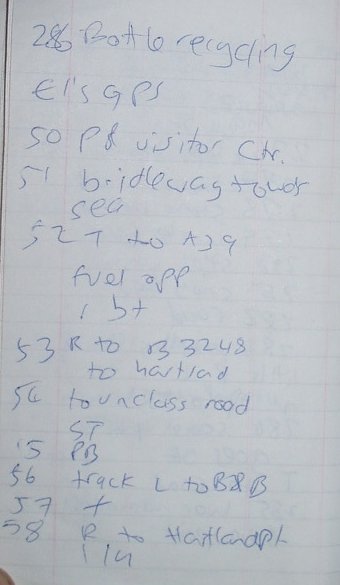 286 Bottle recycling
El's GPS
50 PR visitor Ctr.
51 bridleway towds
sea
52 T to A39
fuel opp
1 bt
53 R to B3248
to hartlad
54 to unclass road
ST
55 PB
56 track L to B&B
57 +
58 R to Hartland Pt